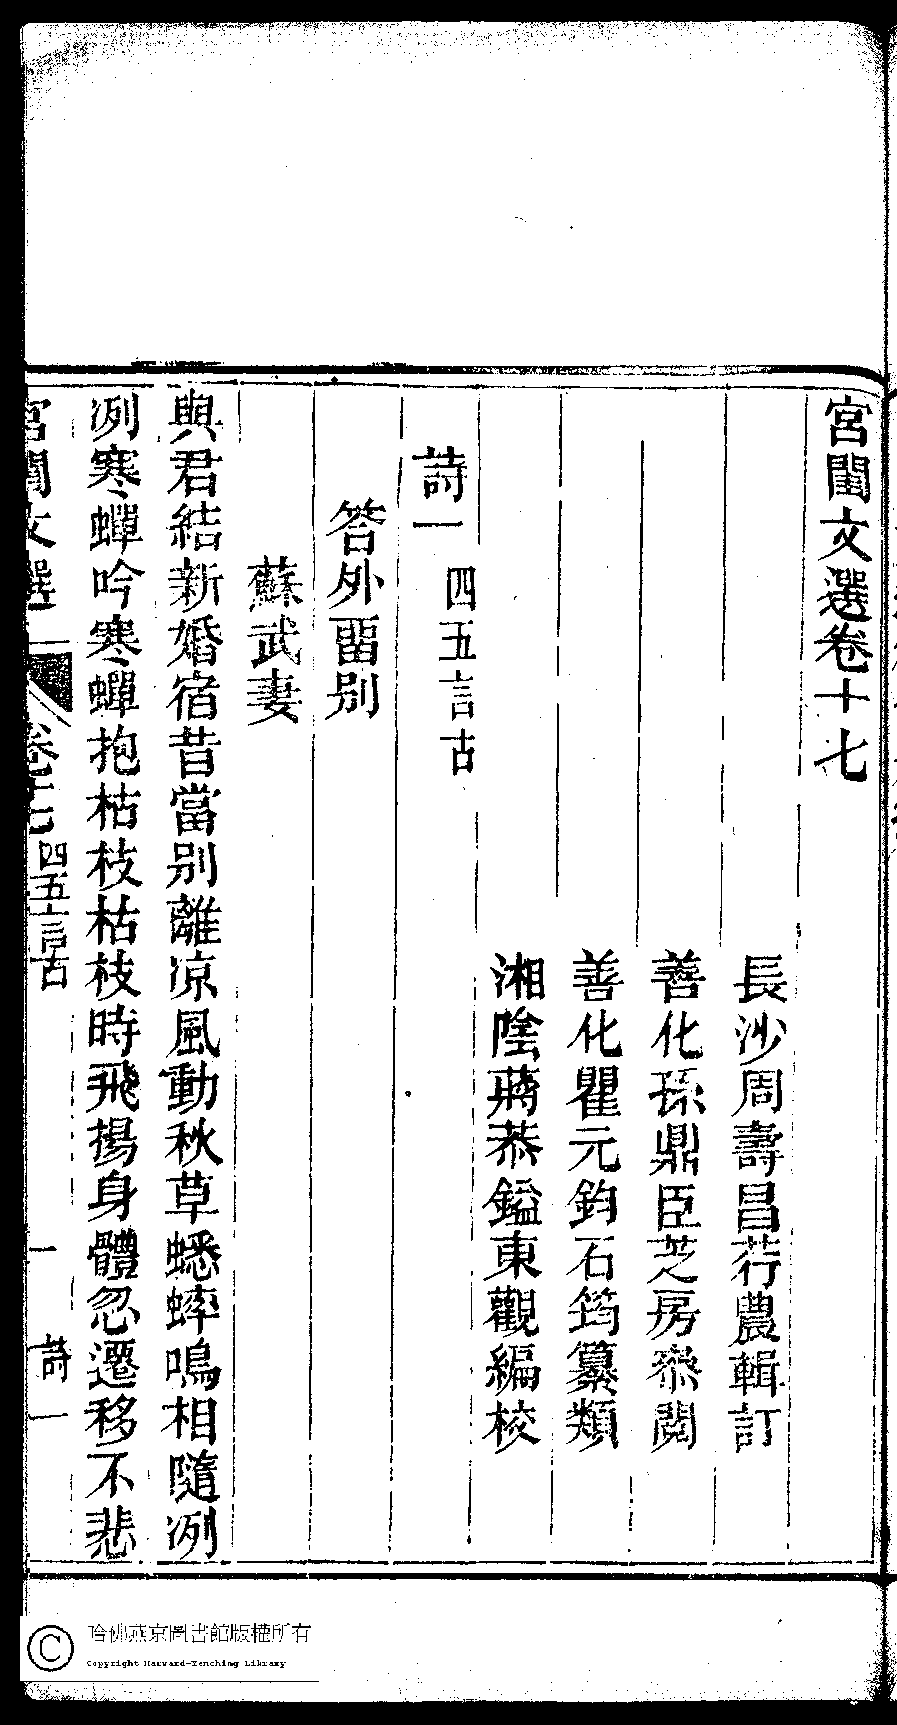 宮閨文選卷十七
長沙周壽昌荇農輯訂
善化孫鼎臣芝房叅閱
善化瞿元鈞石筠纂類
湘陰蔣恭鎰東觀編校
詩一 四五言古
答外畱别
蘇武妻
與君結新婚宿昔當别離凉風動秋草蟋蟀鳴相隨冽
冽寒蟬吟寒蟬抱枯枝枯枝時飛揚身體忽遷移不悲
宮閨文選 卷十七 四五言古 一 詩一
哈佛燕京圖書館版權所有
Copyright Harvard-Yenching Library